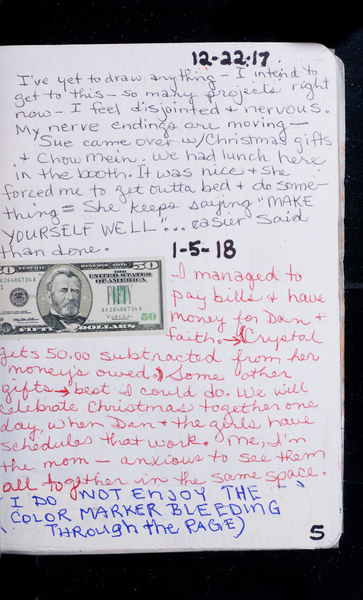 12-22-17
I've yet to draw anything - I intend to
get to this - so many projects right
now - I feel disjointed & nervous.
My nerve endings are moving -
Sue came over w/Christmas gifts
& Chow Mein. we had lunch here
in the booth. It was nice & she
forced me to get outta bed & do some-
thing = She keeps saying "MAKE
YOURSELF WELL"... easier said
than done.
1-5-18
FEDERAL RESERVE NOTE
THE UNITED STATES
OF AMERICA
50
FIFTY DOLLARS
I managed to
pay bills & have
money for Dan &
faith. → Crystal
gets 50.00 subtracted from her
money's owed. Some other
gifts → best I could do. We will
celebrate Christmas together one
day, when Dan & the girls have
schedules that work. Me, I'm
the mom - anxious to see them
all together in the same space.
(I DO NOT ENJOY THE
COLOR MARKER BLEEDING
THROUGH the PAGE)
5